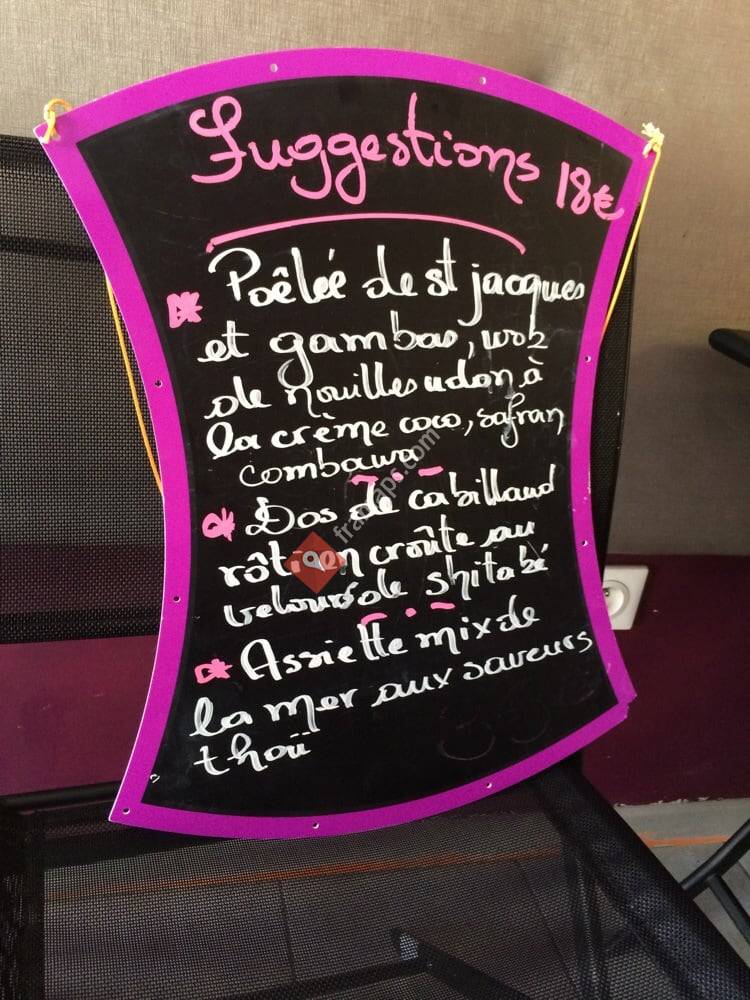 Suggestions 18€
Poêlée de st jacques
et gambas, wok
de nouilles udon à
la crème coco, safran
combawa
Dos de cabillaud
rôti en croûte au
velours de shitaké
Assiette mix de
la mer aux saveurs
thaï